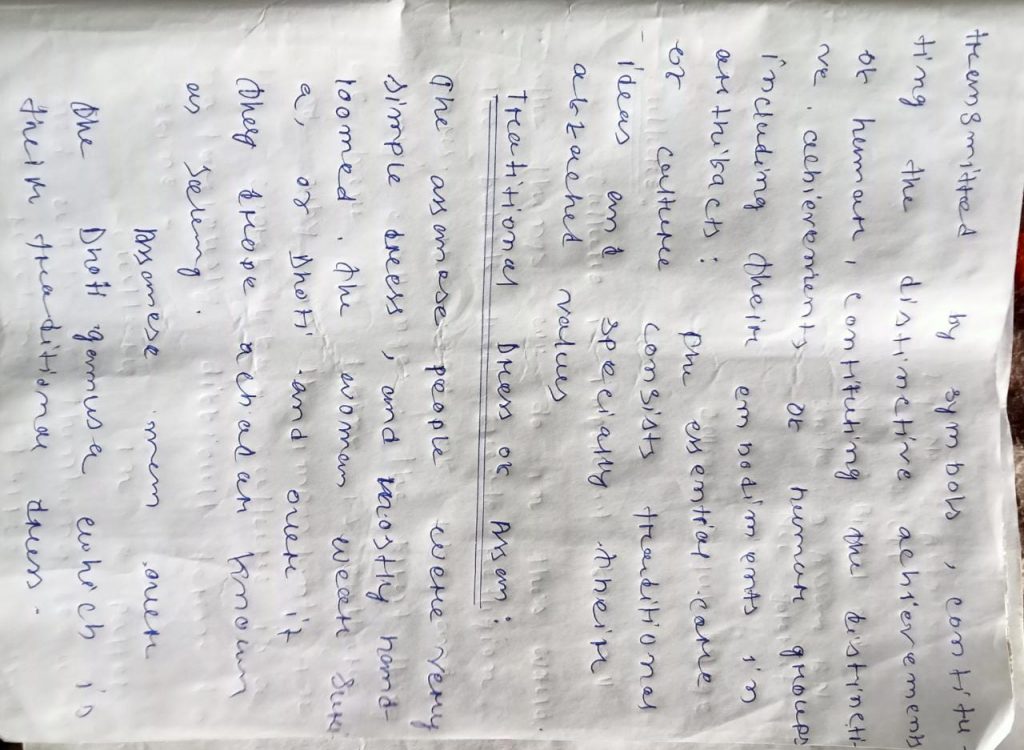 transmitted by symbols, contitu
ting the distinctive achievements
of human, contituting the distincti-
ve achievements of human groups
including their embodiments in
arthibacts: The essential core
of culture consists traditional
ideas and specially their
abrached values
Traitional Dress of Assam:
The assamese people were very
simple dress, and mostly hand-
loomed. The woman weah
a, or Dhoti and over it
They drope a chadar known
as
Assamese men over
The Dhoti gamusa which is
their traditional dress.